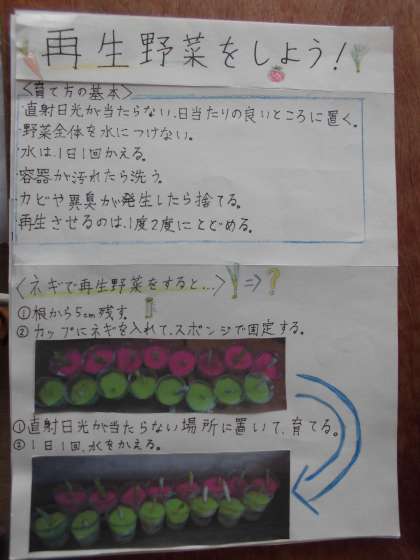 再生野菜をしよう!
<育て方の基本>
直射日光が当たらない、日当たりの良いところに置く。
野菜全体を水につけない。
水は、1日1回かえる。
容器が汚れたら洗う。
カビや異臭が発生したら捨てる。
再生させるのは、1度2度にとどめる。
<ネギで再生野菜をすると…> ⇒?
①根から5cm残す。
②カップにネギを入れて、スポンジで固定する。
①直射日光が当たらない場所に置いて、育てる。
②1日1回、水をかえる。